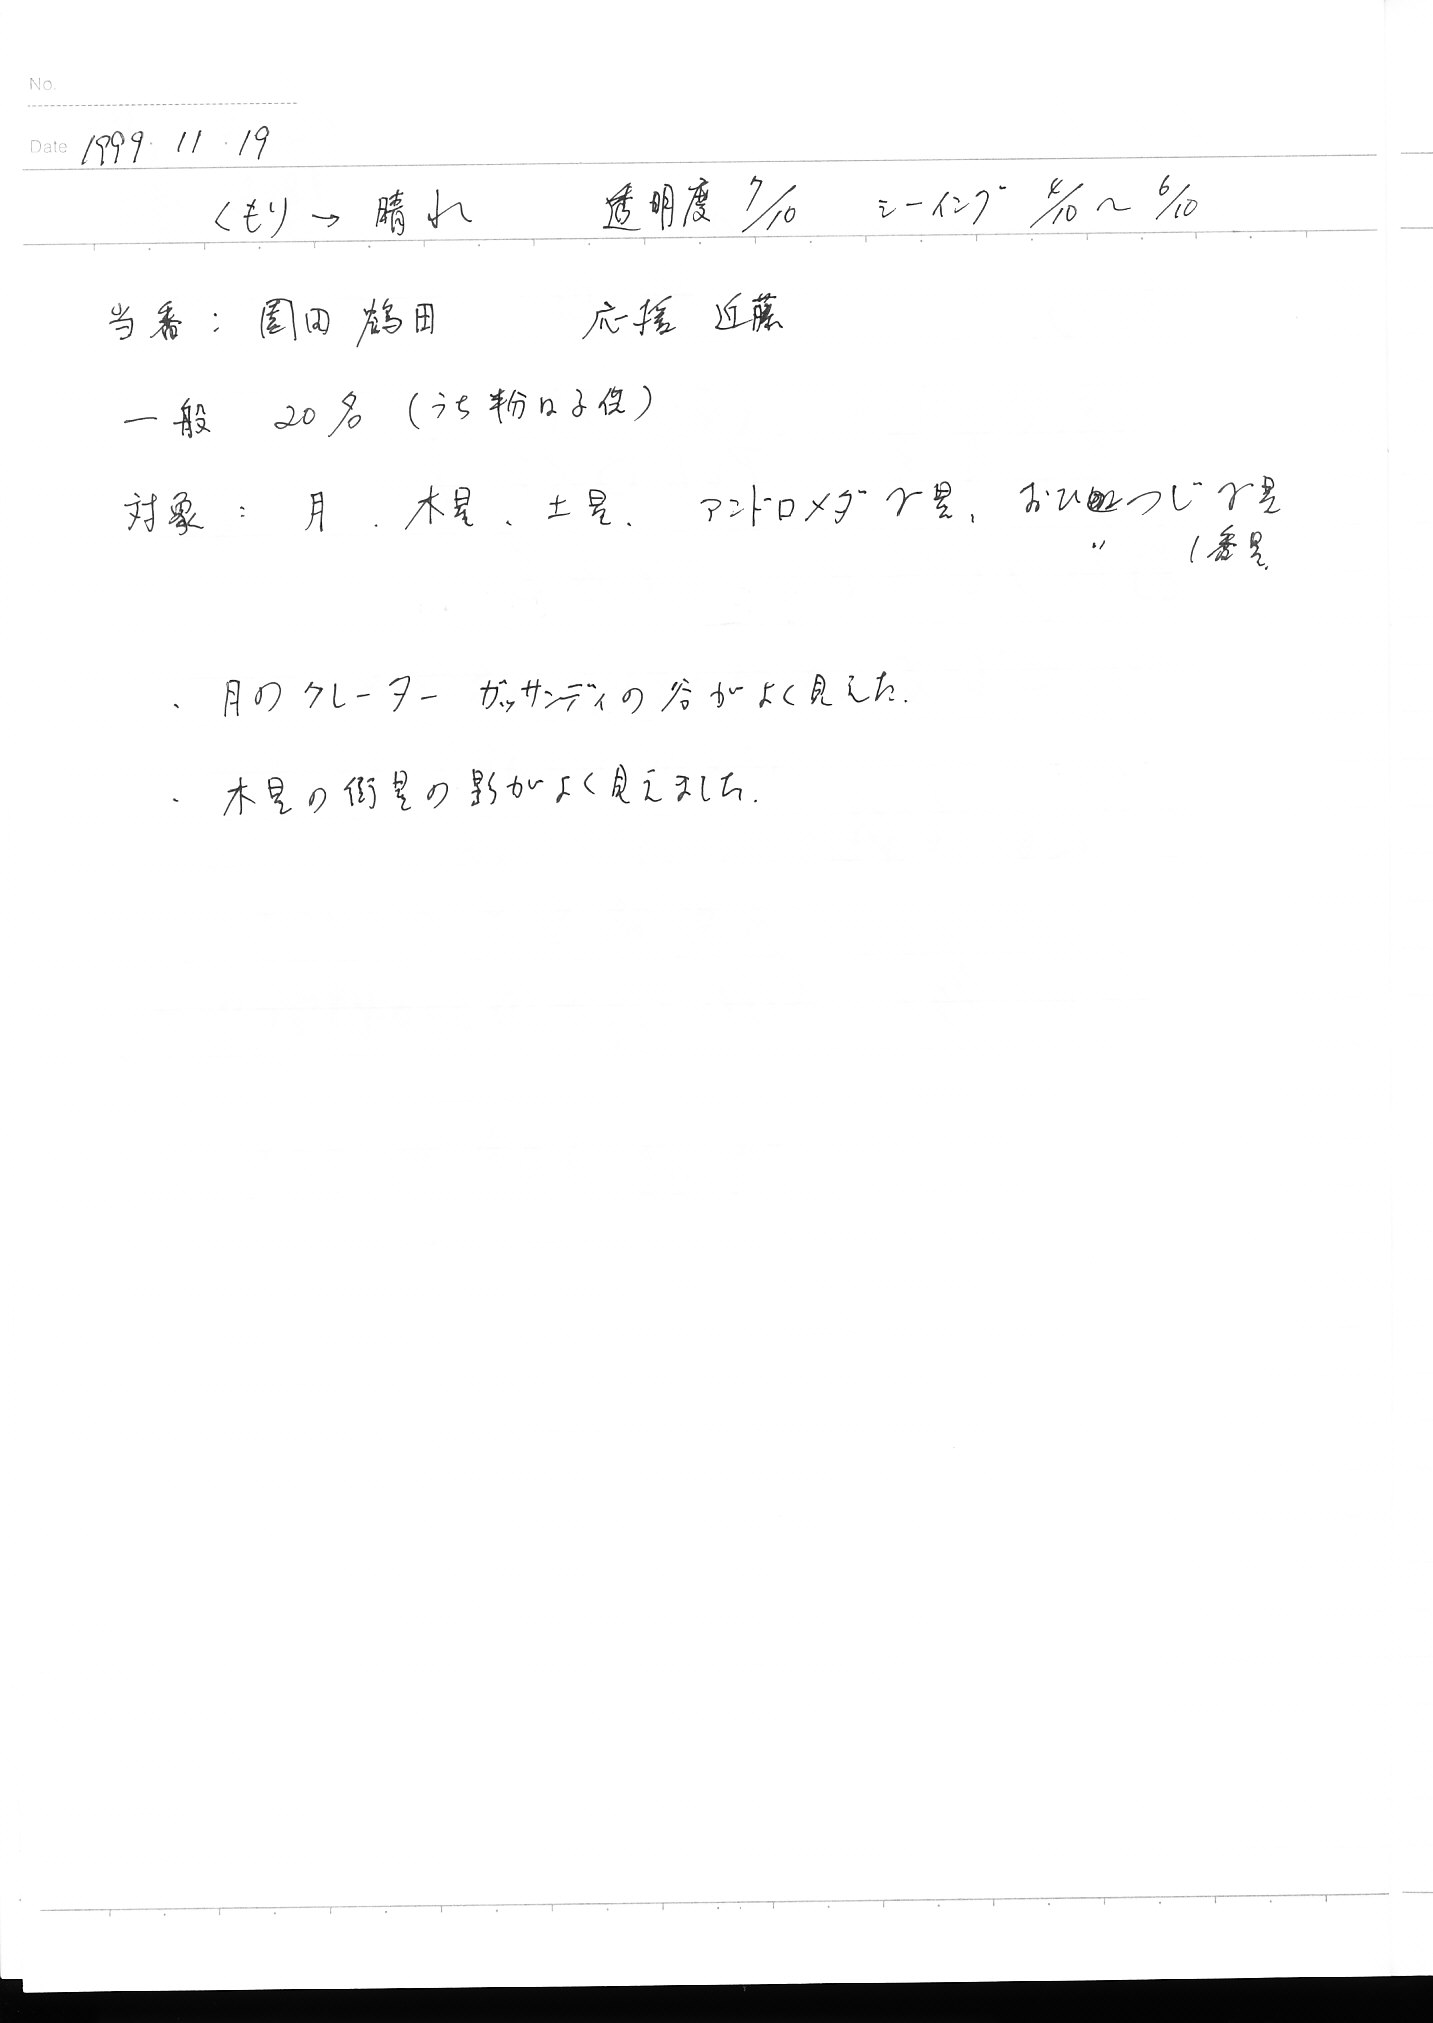 No.
Date 1999・11・19
くもり→晴れ 透明度 7/10 シーイング 4/10～6/10
当番：園田 鶴田 応援 近藤
一般 20名（うち半分は子供）
対象：月、木星、土星、アンドロメダγ星、おひつじγ星
〃 1番星
・月のクレーター ガッサンディの谷がよく見えた.
・木星の衛星の影がよく見えました.